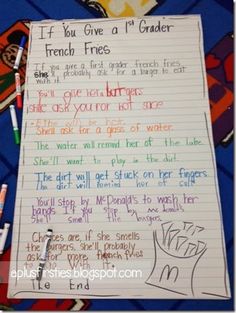 If You Give a 1st Grader
French Fries
If you give a first grader french fries
she'll probably ask for a burger to eat
with it.
You'll give her burgers
she'll ask you for hot sauce
She'll ask for a glass of water.
The water will remind her of the lake.
She'll want to play in the dirt.
The dirt will get stuck on her fingers.
The dirt will remind her of
You'll stop by McDonald's to wash her
hands. If you stop by mcdonalds
She'll smell the burgers.
Chances are, if she smells
the burgers, she'll probably
ask for more french fries
to go with it.
The End
M
eplusfirsties.blogspot.com